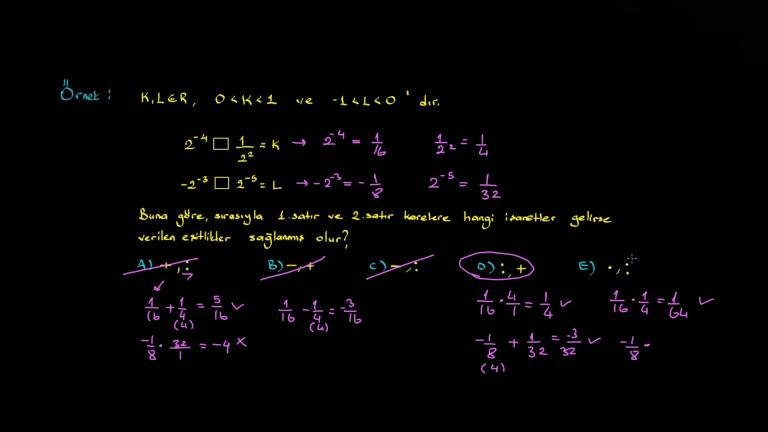 Örnek: K,L∈R, 0<K<1 ve -1<L<0 'dır.
2⁻⁴ □ 1/2² = K → 2⁻⁴ = 1/16 1/2² = 1/4
-2⁻³ □ 2⁻⁵ = L → -2⁻³ = -1/8 2⁻⁵ = 1/32
Buna göre, sırasıyla 1.satır ve 2.satır karelere hangi işaretler gelirse
verilen eşitlikler sağlanmış olur?
A) +,: B) -,+ C) -,: D) :,+ E) ·,:
1/16 + 1/4 = 5/16 ✓ 1/16 - 1/4 = -3/16 1/16 · 4/1 = 1/4 ✓ 1/16 · 1/4 = 1/64 ✓
(4) (4)
-1/8 · 32/1 = -4 × -1/8 + 1/32 = -3/32 ✓ -1/8 ·
(4)